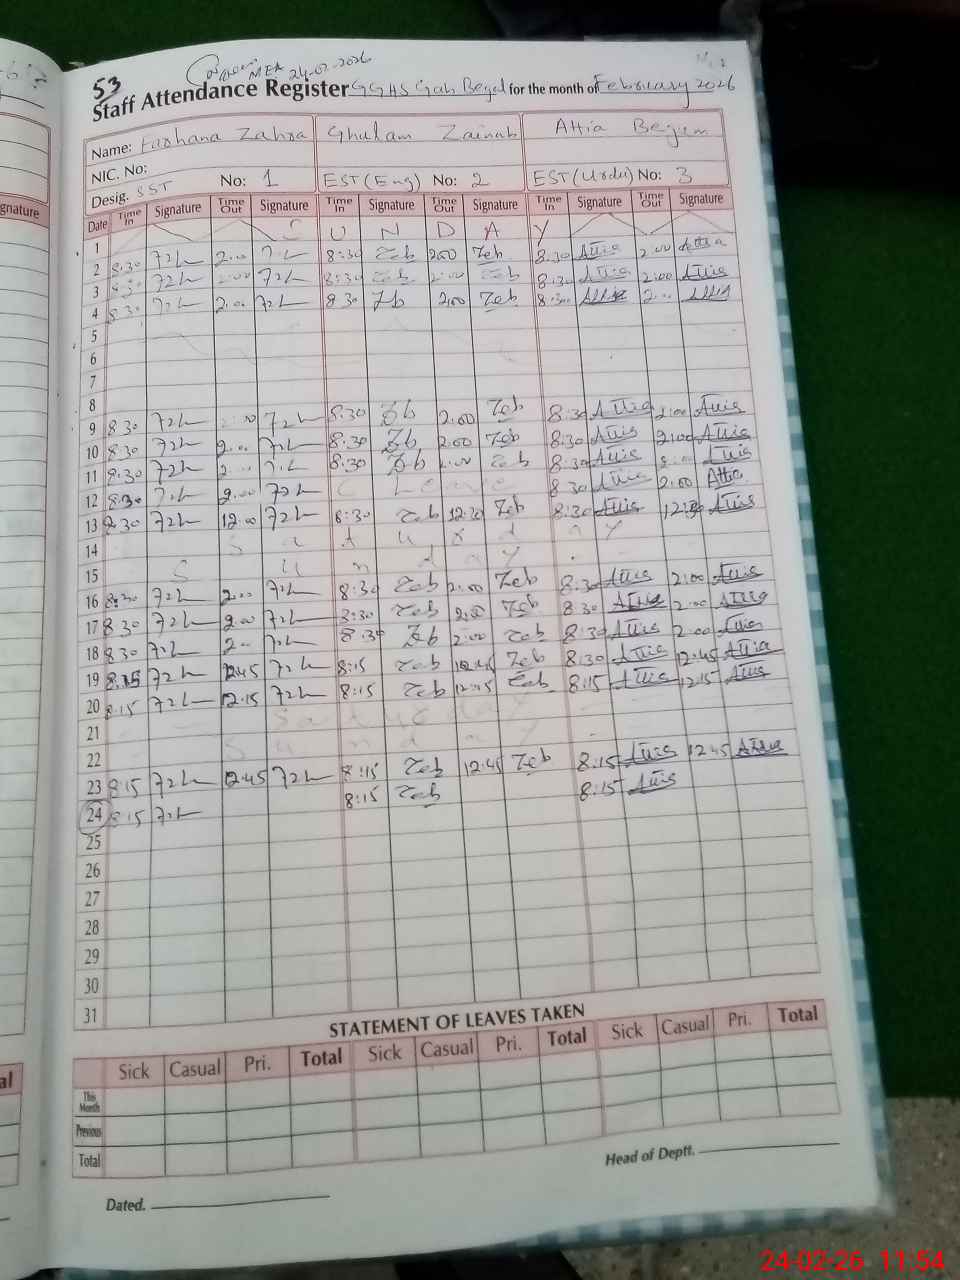 53 MEA 24-02-2026
Staff Attendance Register GGHS Gah Begal for the month of February 2026
Name: Farhana Zahra Ghulam Zainab Attia Begum
NIC. No:
Desig. SST No: 1 EST (Eng) No: 2 EST (Urdu) No: 3
Date Time In Signature Time Out Signature Time In Signature Time Out Signature Time In Signature Time Out Signature
1 S U N D A Y
2 8:30 2:00 8:30 Zeb 2:00 Zeb 8:30 Attia 2:00 Attia
3 8:30 2:00 8:30 Zeb 2:00 Zeb 8:30 Attia 2:00 Attia
4 8:30 2:00 8:30 Zeb 2:00 Zeb 8:30 Attia 2:00 Attia
5
6
7
8
9 8:30 2:00 8:30 Zeb 2:00 Zeb 8:30 Attia 2:00 Attia
10 8:30 2:00 8:30 Zeb 2:00 Zeb 8:30 Attia 2:00 Attia
11 8:30 2:00 8:30 Zeb 2:00 Zeb 8:30 Attia 2:00 Attia
12 8:30 2:00 C Leave 8:30 Attia 2:00 Attia
13 8:30 12:00 8:30 Zeb 12:30 Zeb 8:30 Attia 12:30 Attia
14 S a t u r d a y
15 S u n d a y
16 8:30 2:00 8:30 Zeb 2:00 Zeb 8:30 Attia 2:00 Attia
17 8:30 2:00 8:30 Zeb 2:00 Zeb 8:30 Attia 2:00 Attia
18 8:30 2:00 8:30 Zeb 2:00 Zeb 8:30 Attia 2:00 Attia
19 8:15 12:45 8:15 Zeb 12:45 Zeb 8:30 Attia 12:45 Attia
20 8:15 12:15 8:15 Zeb 12:15 Zeb 8:15 Attia 12:15 Attia
21 Saturday
22 Sunday
23 8:15 12:45 8:15 Zeb 12:45 Zeb 8:15 Attia 12:45 Attia
24 8:15 8:15 Zeb 8:15 Attia
25
26
27
28
29
30
31
STATEMENT OF LEAVES TAKEN
Sick Casual Pri. Total Sick Casual Pri. Total Sick Casual Pri. Total
This Month
Previous
Total
Dated. Head of Deptt.
24-02-26 11:54